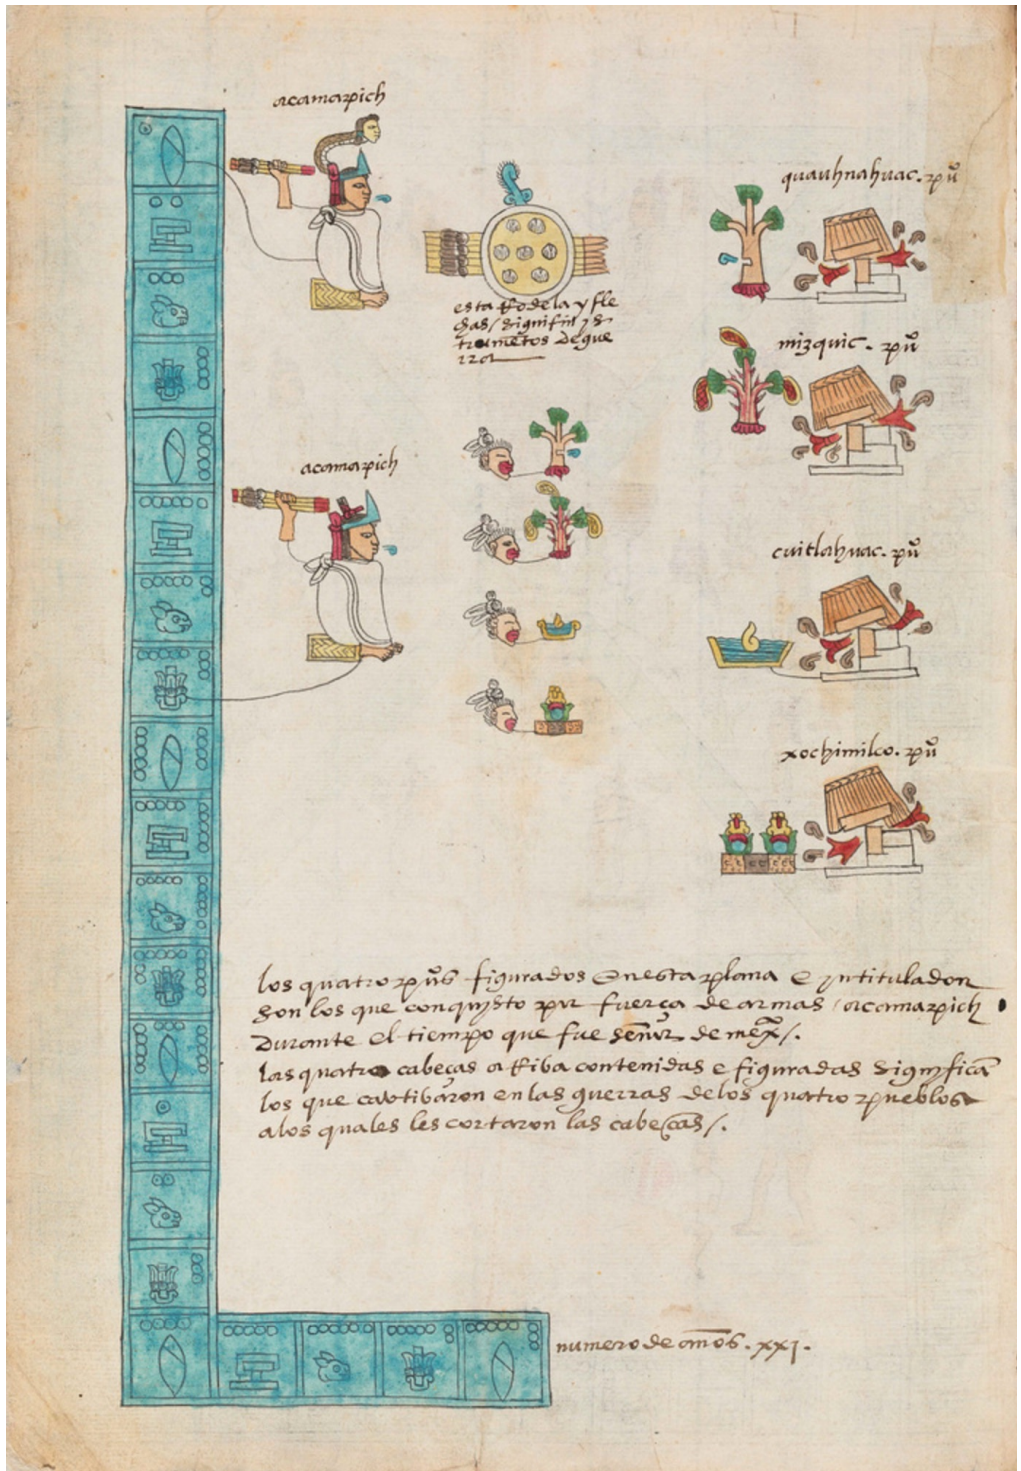 acamapich
quauhnahuac. pūo
esta Rodela y fle
chas / significā yns
trumētos de gue
rra
mizquic. pūo
acamapich
cuitlahuac. pūo
xochimilco. pūo
los quatro pūos figurados en esta plana e yntitulados
son los que conquisto por fuerça de armas / acamapich
Durante el tiempo que fue señor de mexᶜᵒ /.
las quatro cabeças aRiba contenidas e figuradas significā
los que cavtibaron en las guerras de los quatro pueblos
a los quales les cortaron las cabeças /.
numero de años. xxj.